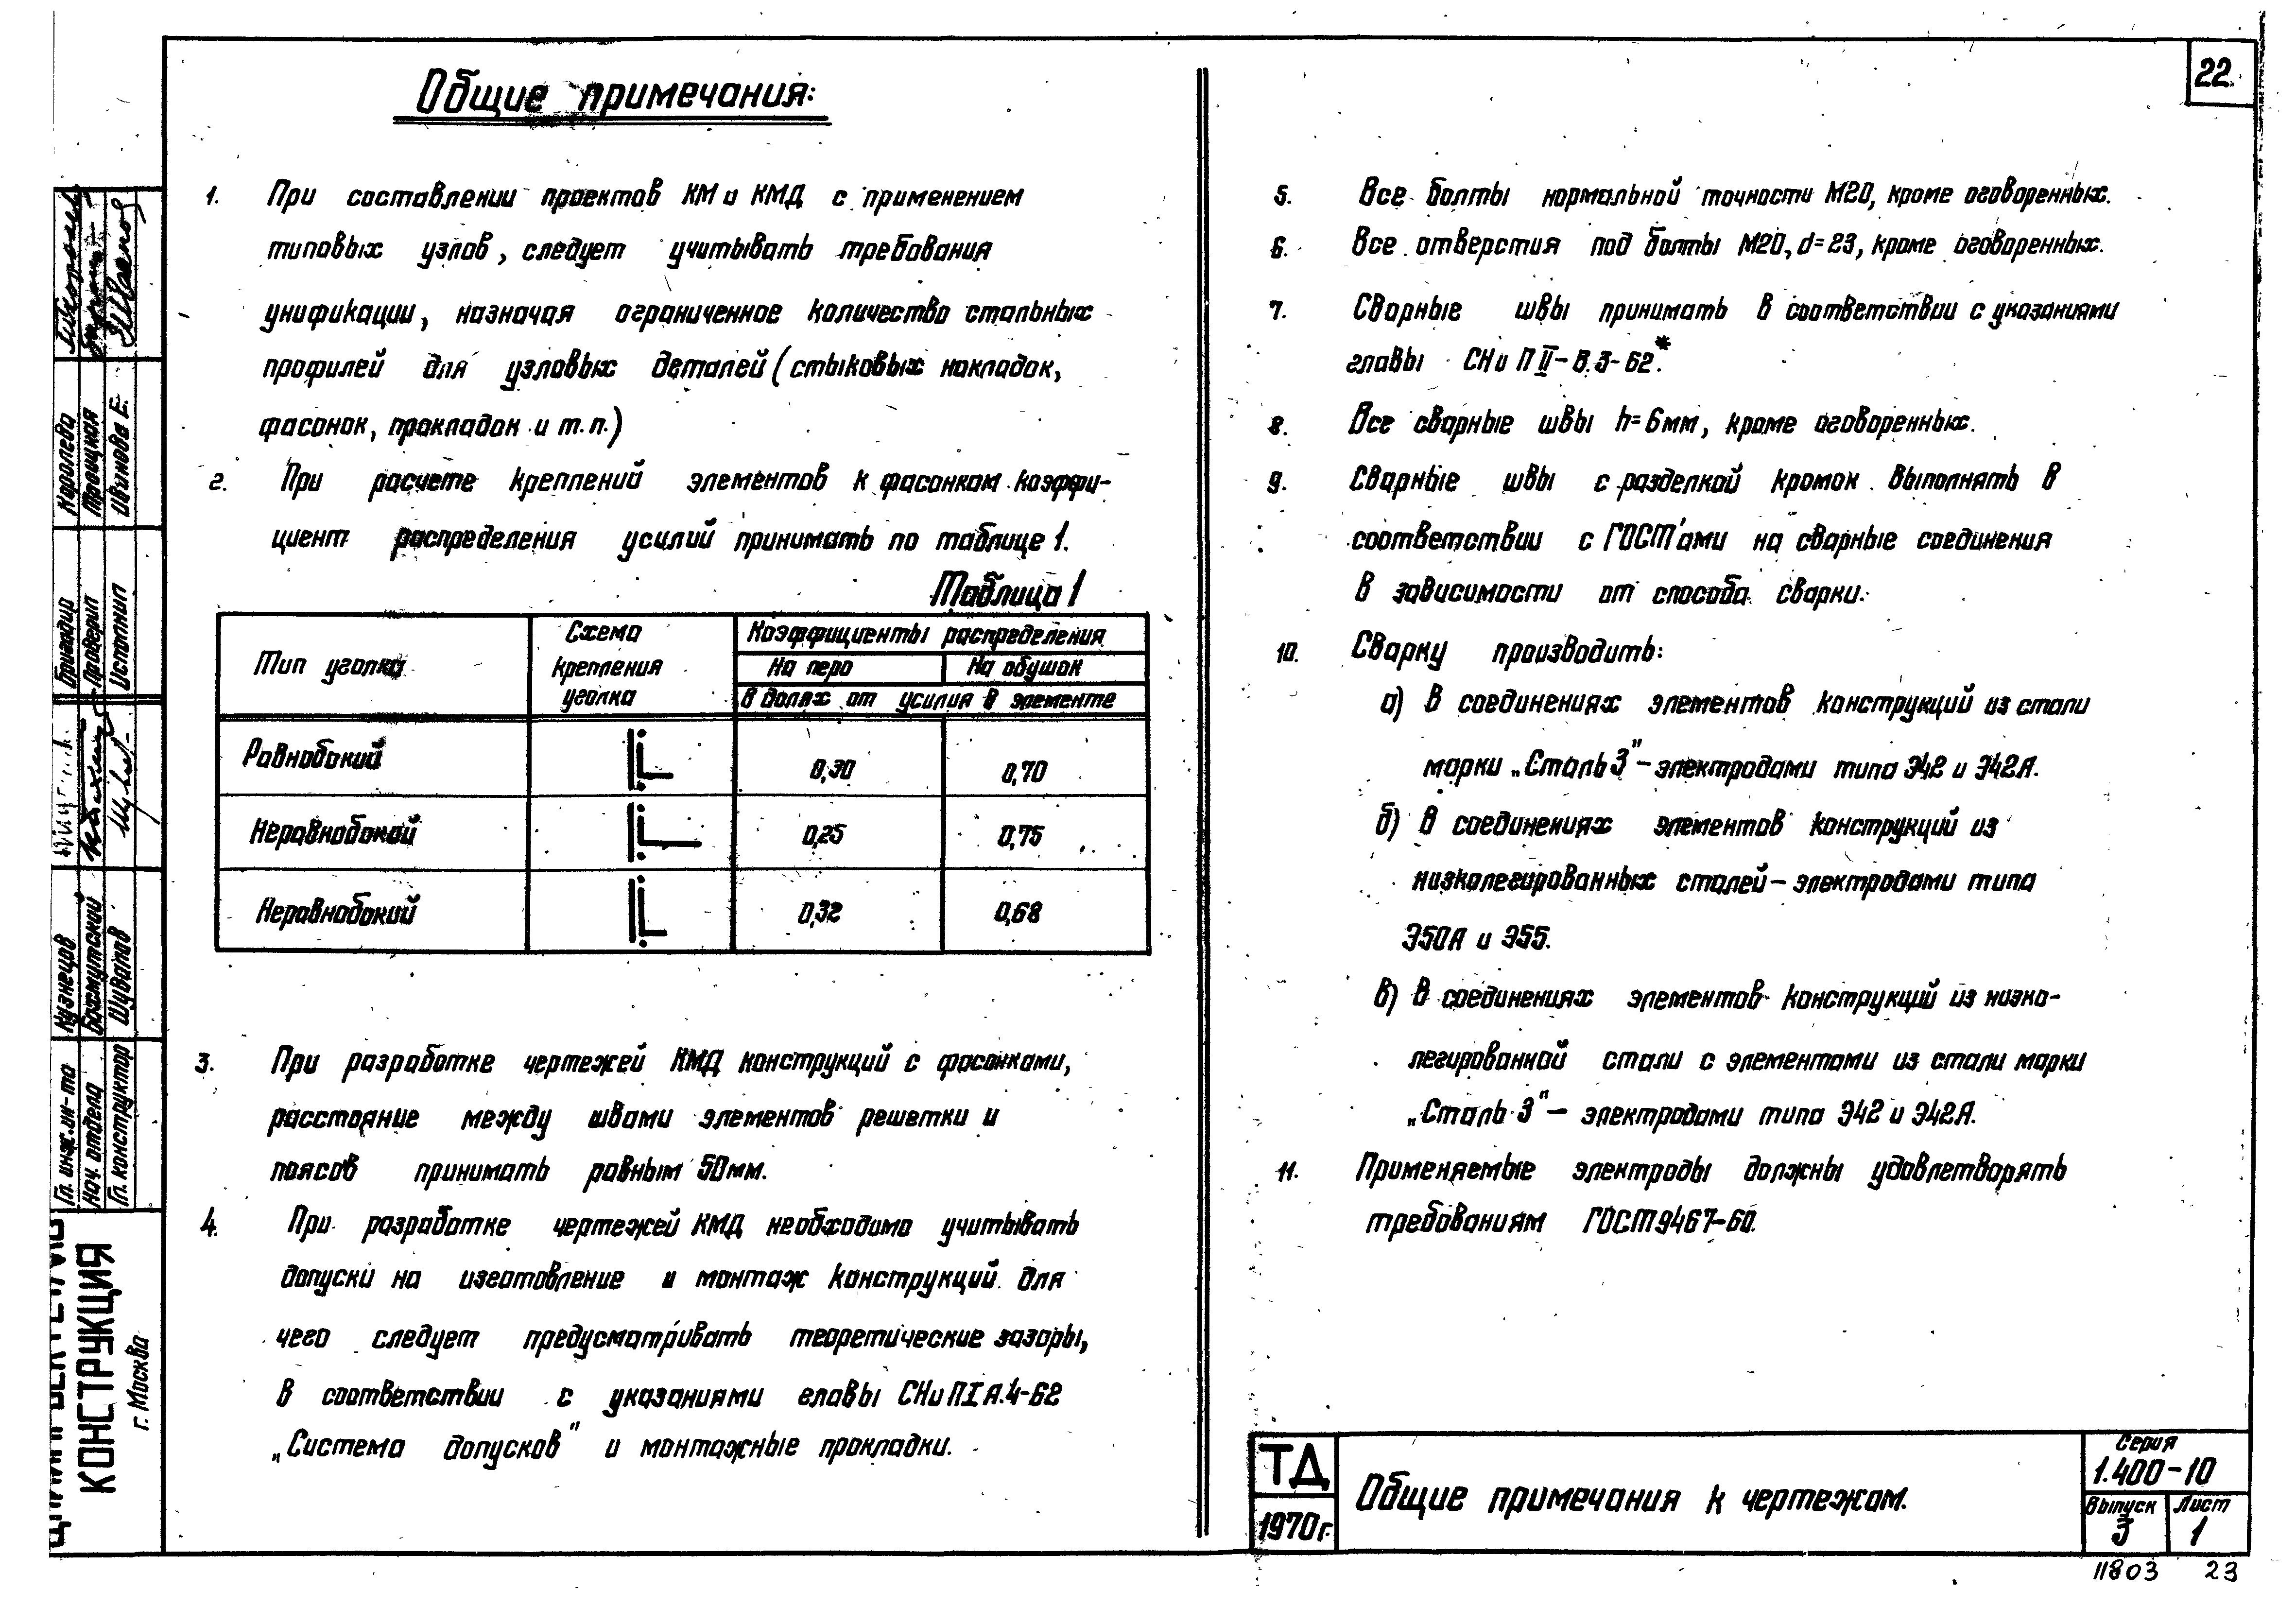 22
Общие примечания:
1. При составлении проектов КМ и КМД с применением
типовых узлов, следует учитывать требования
унификации, назначая ограниченное количество стальных
профилей для узловых деталей (стыковых накладок,
фасонок, прокладок и т.п.)
2. При расчете креплений элементов к фасонкам коэффи-
циент распределения усилий принимать по таблице 1.
Таблица 1
Тип уголка
Схема
крепления
уголка
Коэффициенты распределения
На перо На обушок
в долях от усилия в элементе
Равнобокий 0,30 0,70
Неравнобокий 0,25 0,75
Неравнобокий 0,32 0,68
3. При разработке чертежей КМД конструкций с фасонками,
расстояние между швами элементов решетки и
поясов принимать равным 50мм.
4. При разработке чертежей КМД необходимо учитывать
допуски на изготовление и монтаж конструкций для
чего следует предусматривать теоретические зазоры,
в соответствии с указаниями главы СНиП I А.4-62
„Система допусков" и монтажные прокладки.
5. Все болты нормальной точности М20, кроме оговоренных.
6. Все отверстия под болты М20, d=23, кроме оговоренных.
7. Сварные швы принимать в соответствии с указаниями
главы СНиП II-В.3-62*.
8. Все сварные швы h=6мм, кроме оговоренных.
9. Сварные швы с разделкой кромок выполнять в
соответствии с ГОСТ'ами на сварные соединения
в зависимости от способа сварки.
10. Сварку производить:
а) в соединениях элементов конструкций из стали
марки „Сталь 3"-электродами типа Э42 и Э42А.
б) в соединениях элементов конструкций из
низколегированных сталей-электродами типа
Э50А и Э55.
в) в соединениях элементов конструкций из низко-
легированной стали с элементами из стали марки
„Сталь 3"- электродами типа Э42 и Э42А.
11. Применяемые электроды должны удовлетворять
требованиям ГОСТ 9467-60.
ТД
1970г.
Общие примечания к чертежам.
Серия
1.400-10
Выпуск
3
Лист
1
11803 23
Бригадир Королева
Проверил
Исполнил Иванова Е.
Гл. инж. ин-та Кузнецов
Нач. отдела Бахмутский
Гл. конструктор Шувалов
КОНСТРУКЦИЯ
г. Москва